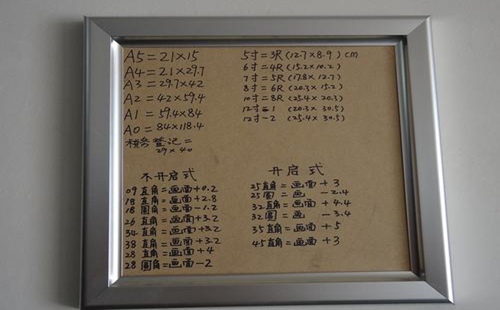 A5=21×15
A4=21×29.7
A3=29.7×42
A2=42×59.4
A1=59.4×84
A0=84×118.4
税务登记=
29×40
5寸=3R(12.7×8.9)cm
6寸=4R(15.2×10.2)
7寸=5R(17.8×12.7)
8寸=6R(20.3×15.2)
10寸=8R(25.4×20.3)
12寸=1(20.3×30.5)
12寸-2(25.4×30.5)
不开启式
09直角=画面+0.2
18直角=画面+2.8
18圆角=画面-1.2
26直角=画面+3.2
34直角=画面+3.2
38直角=画面+3.2
28直角=画面+4
28圆角=画面-2
开启式
25直角=画面+3
25圆=画-2.4
32直角=画面+4.4
32圆=画-3.4
35直角=画面+5
45直角=画面+3